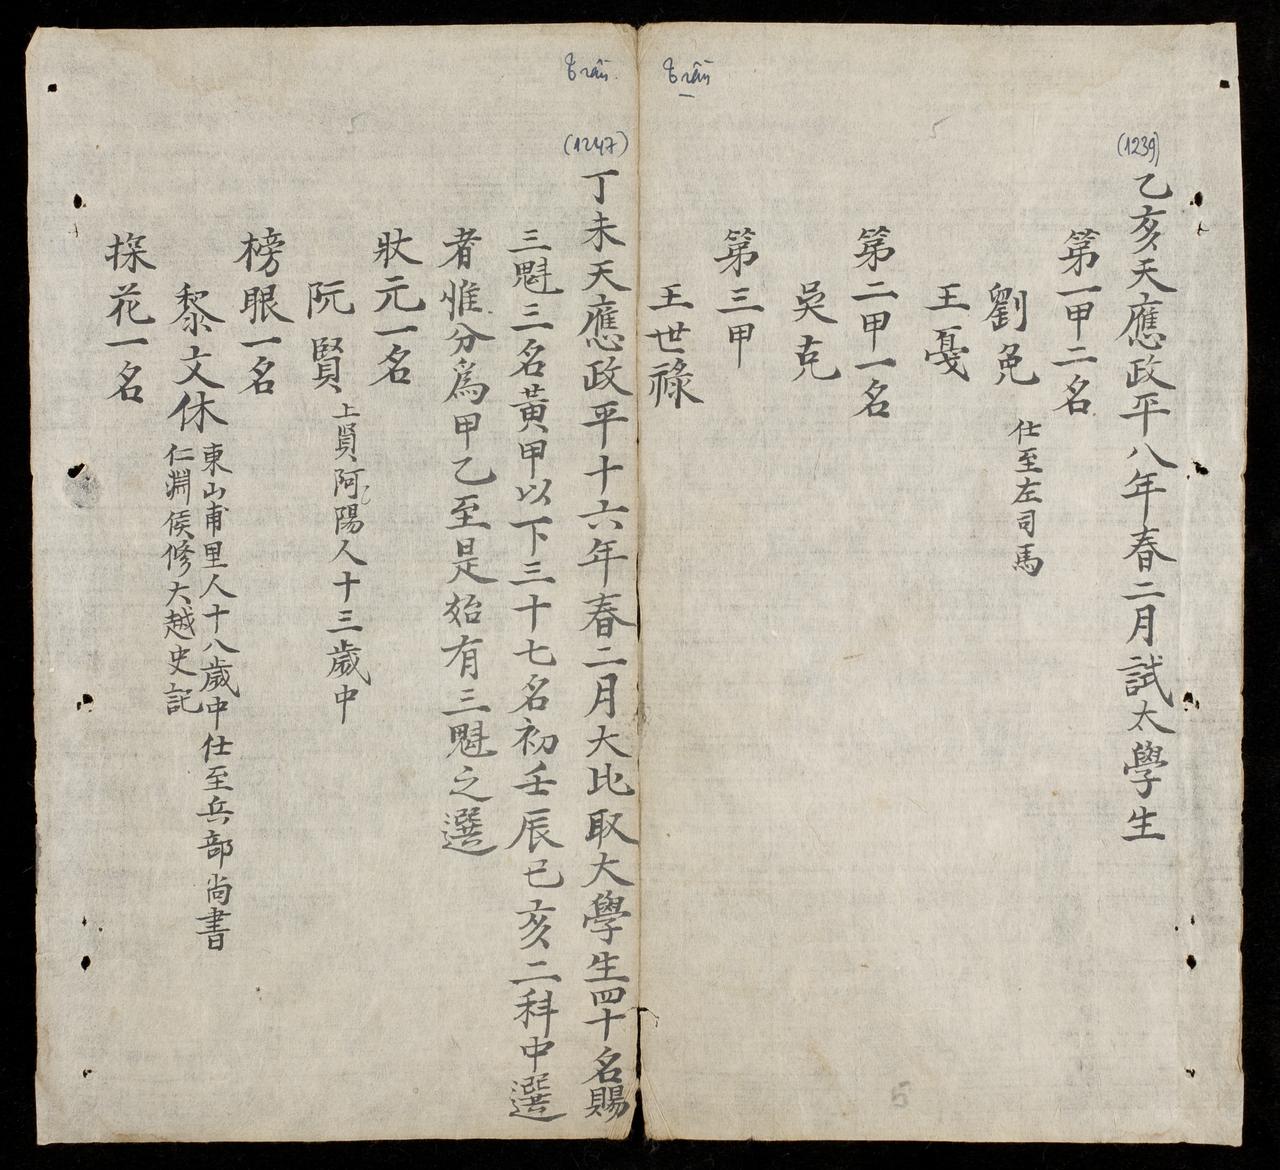 Trần
(1239)
乙亥天應政平八年春二月試太學生
第一甲二名
劉免 仕至左司馬
王戞
第二甲一名
吳克
第三甲
王世祿
5
Trần
(1247)
丁未天應政平十六年春二月大比取大學生四十名賜
三魁三名黃甲以下三十七名初壬辰己亥二科中選
者惟分為甲乙至是始有三魁之選
狀元一名
阮賢 上賢阿陽人十三歲中
榜眼一名
黎文休 東山甫里人十八歲中仕至兵部尚書
仁淵侯修大越史記
探花一名